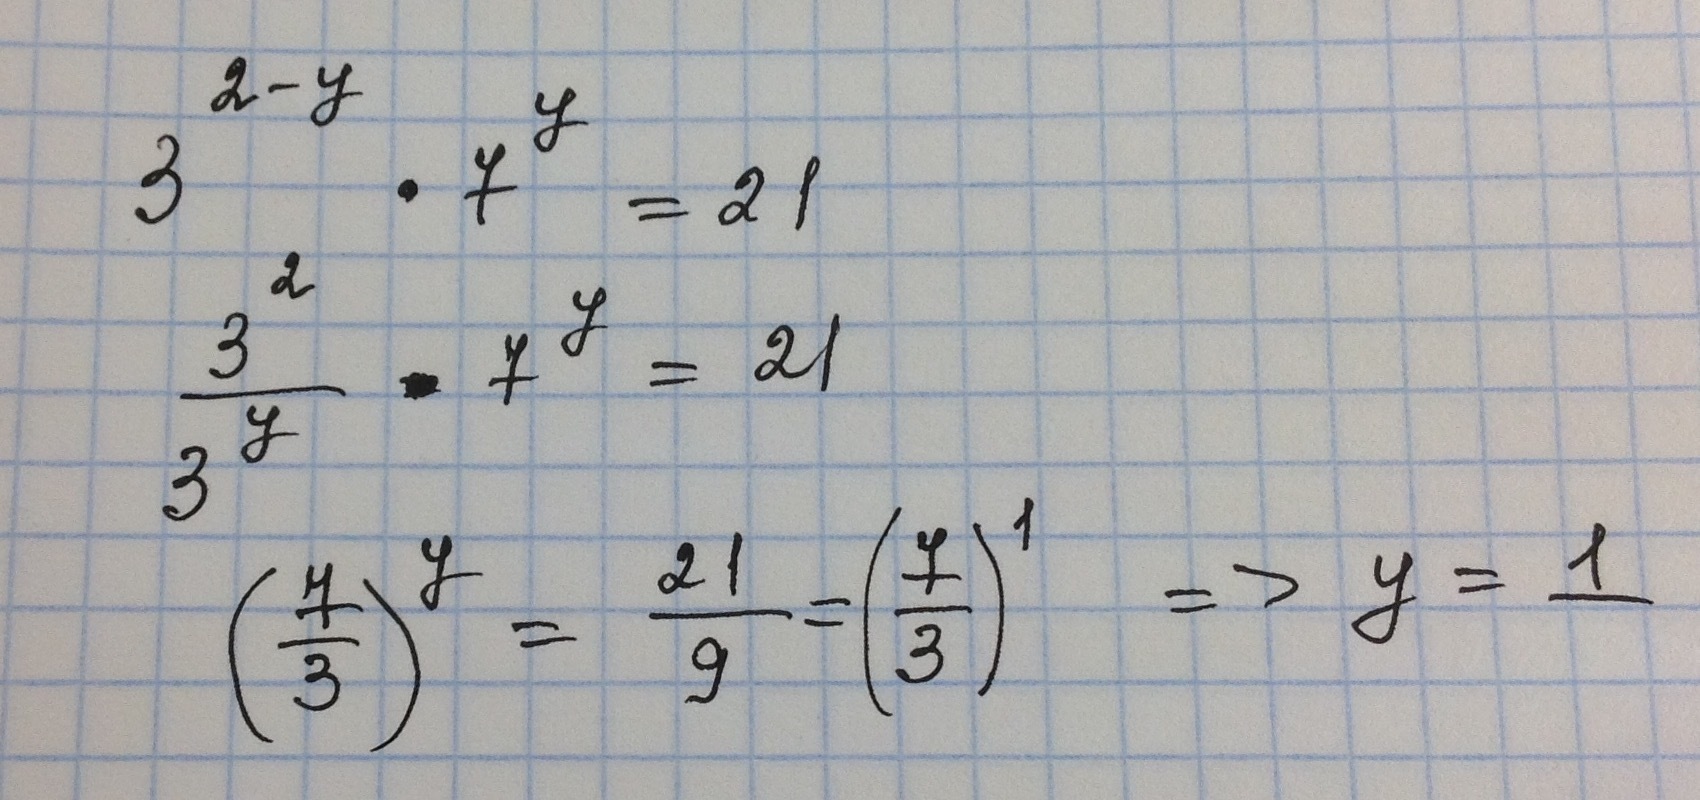 3^{2-y} · 7^y = 21
\frac{3^2}{3^y} · 7^y = 21
(\frac{7}{3})^y = \frac{21}{9} = (\frac{7}{3})^1 => y = 1